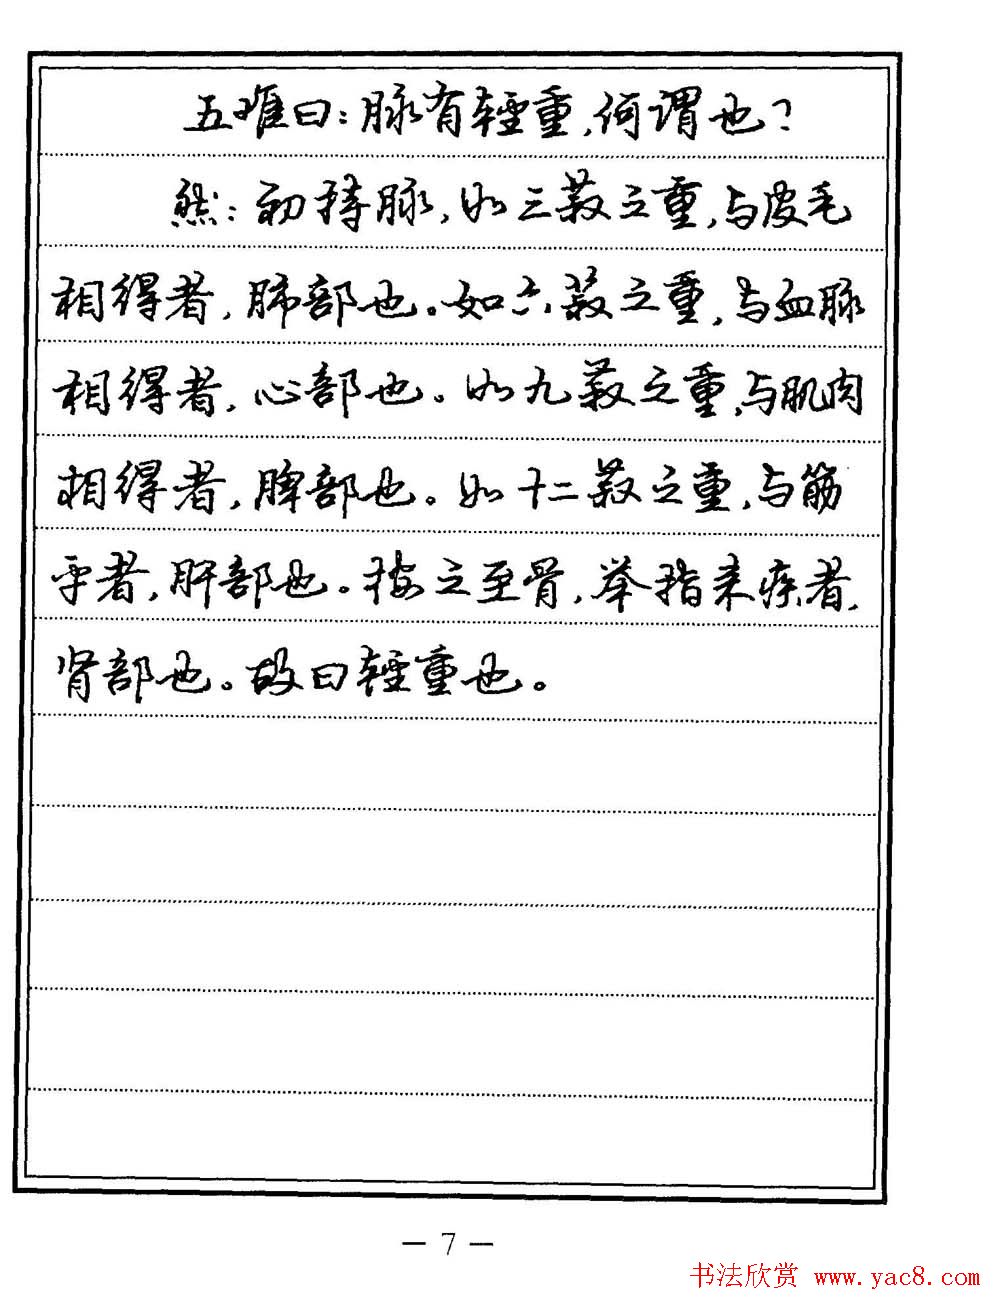 五难曰：脉有轻重，何谓也？
然：初持脉，如三菽之重，与皮毛
相得者，肺部也。如六菽之重，与血脉
相得者，心部也。如九菽之重，与肌肉
相得者，脾部也。如十二菽之重，与筋
平者，肝部也。按之至骨，举指来疾者，
肾部也。故曰轻重也。
— 7 —
书法欣赏 www.yac8.com